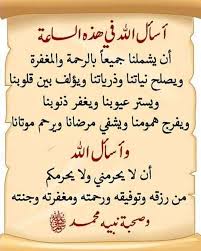 أسأل الله في هذه الساعة
أن يشملنا جميعاً بالرحمة والمغفرة
ويصلح نياتنا وذرياتنا ويؤلف بين قلوبنا
ويستر عيوبنا ويغفر ذنوبنا
ويفرج همومنا ويشفي مرضانا ويرحم موتانا
وأسأل الله
أن لا يحرمني ولا يحرمكم
من رزقه وتوفيقه ورحمته ومغفرته وجنته
وصحبة نبيه محمد ﷺ